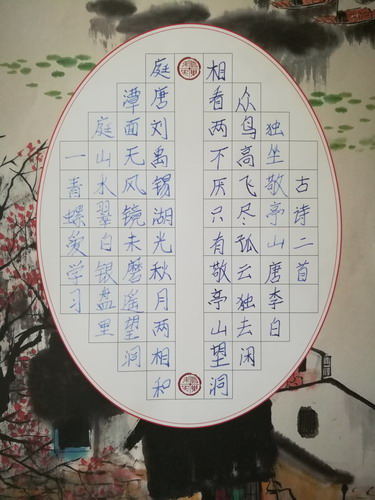 古诗二首
独坐敬亭山唐李白
众鸟高飞尽孤云独去闲
相看两不厌只有敬亭山望洞
庭唐刘禹锡湖光秋月两相和
潭面无风镜未磨遥望洞
庭山水翠白银盘里
一青螺爱学习